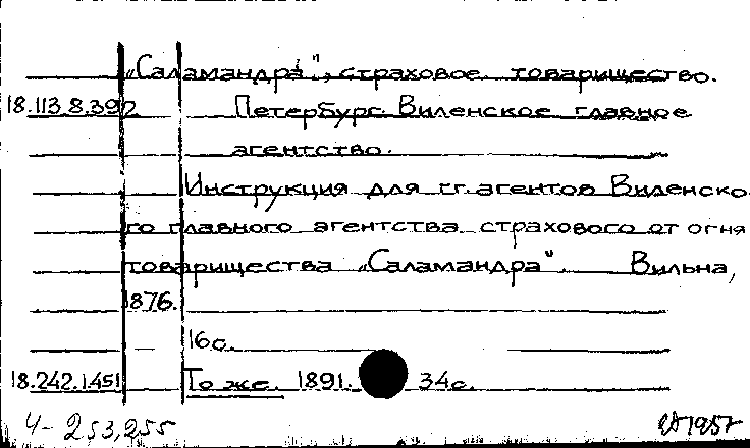 „Саламандра", страховое товарищество.
18.113.8.392 Петербург. Виленское главное
агентство.
Инструкция для г.г. агентов Виленско-
го главного агентства страхового от огня
товарищества „Саламандра". Вильна,
1876.
16с.
18.242.1.451 То же. 1891. 34с.
4-253,255 1957